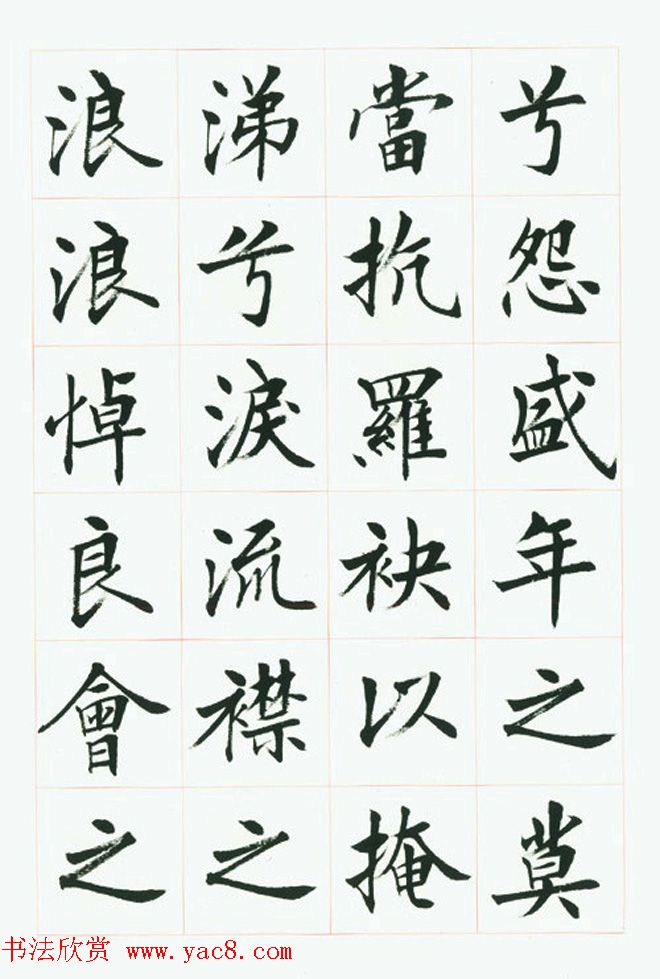 兮怨盛年之莫
當抗羅袂以掩
涕兮淚流襟之
浪浪悼良會之
书法欣赏 www.yac8.com